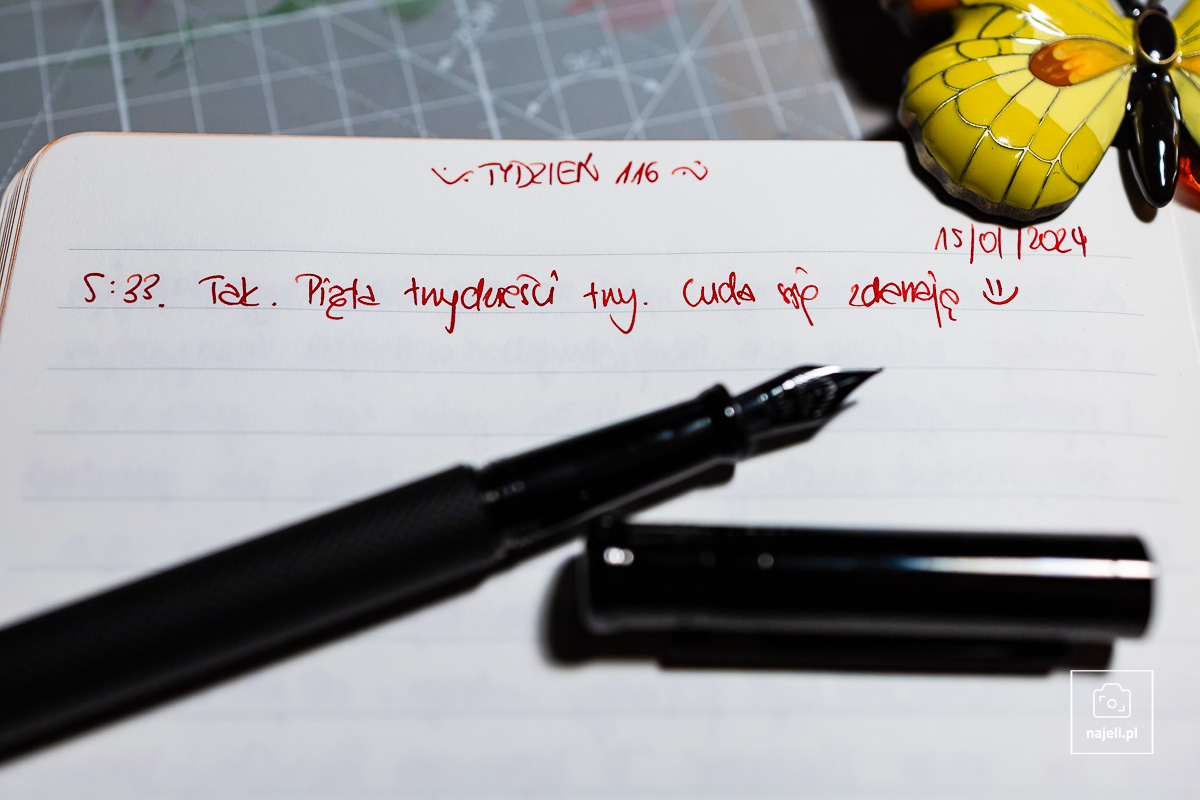 ~ TYDZIEŃ 116 ~
15/01/2024
5:33. Tak. Piąta trzydzieści trzy. Cuda się zdarzają :)
najeli.pl